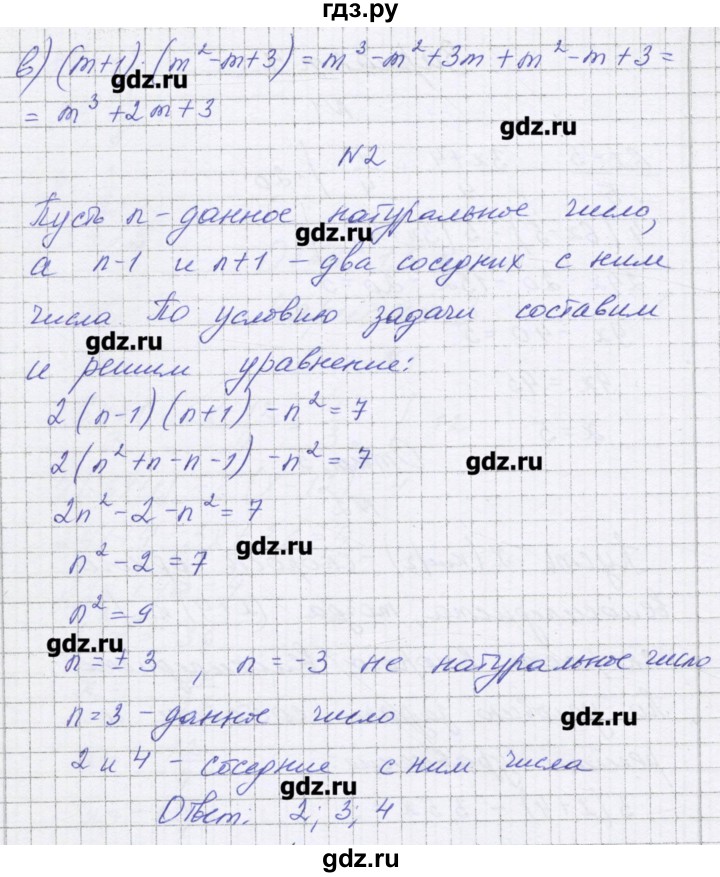 гдз.ру
в) (m+1)·(m²-m+3) = m³-m²+3m+m²-m+3=
gdz.ru
= m³+2m+3
gdz.ru
N2
Пусть n-данное натуральное число,
gdz.ru
а n-1 и n+1 – два соседних с ним
числа По условию задачи составим
gdz.ru
и решим уравнение:
2(n-1)(n+1)-n²=7
2(n²+n-n-1)-n²=7
gdz.ru
2n²-2-n²=7
gdz.ru
n²-2=7
n²=9
gdz.ru
n=±3, n=-3 не натуральное число
n=3-данное число
gdz.ru
2 и 4 – соседние с ним числа
gdz.ru
Ответ: 2; 3; 4
gdz.ru